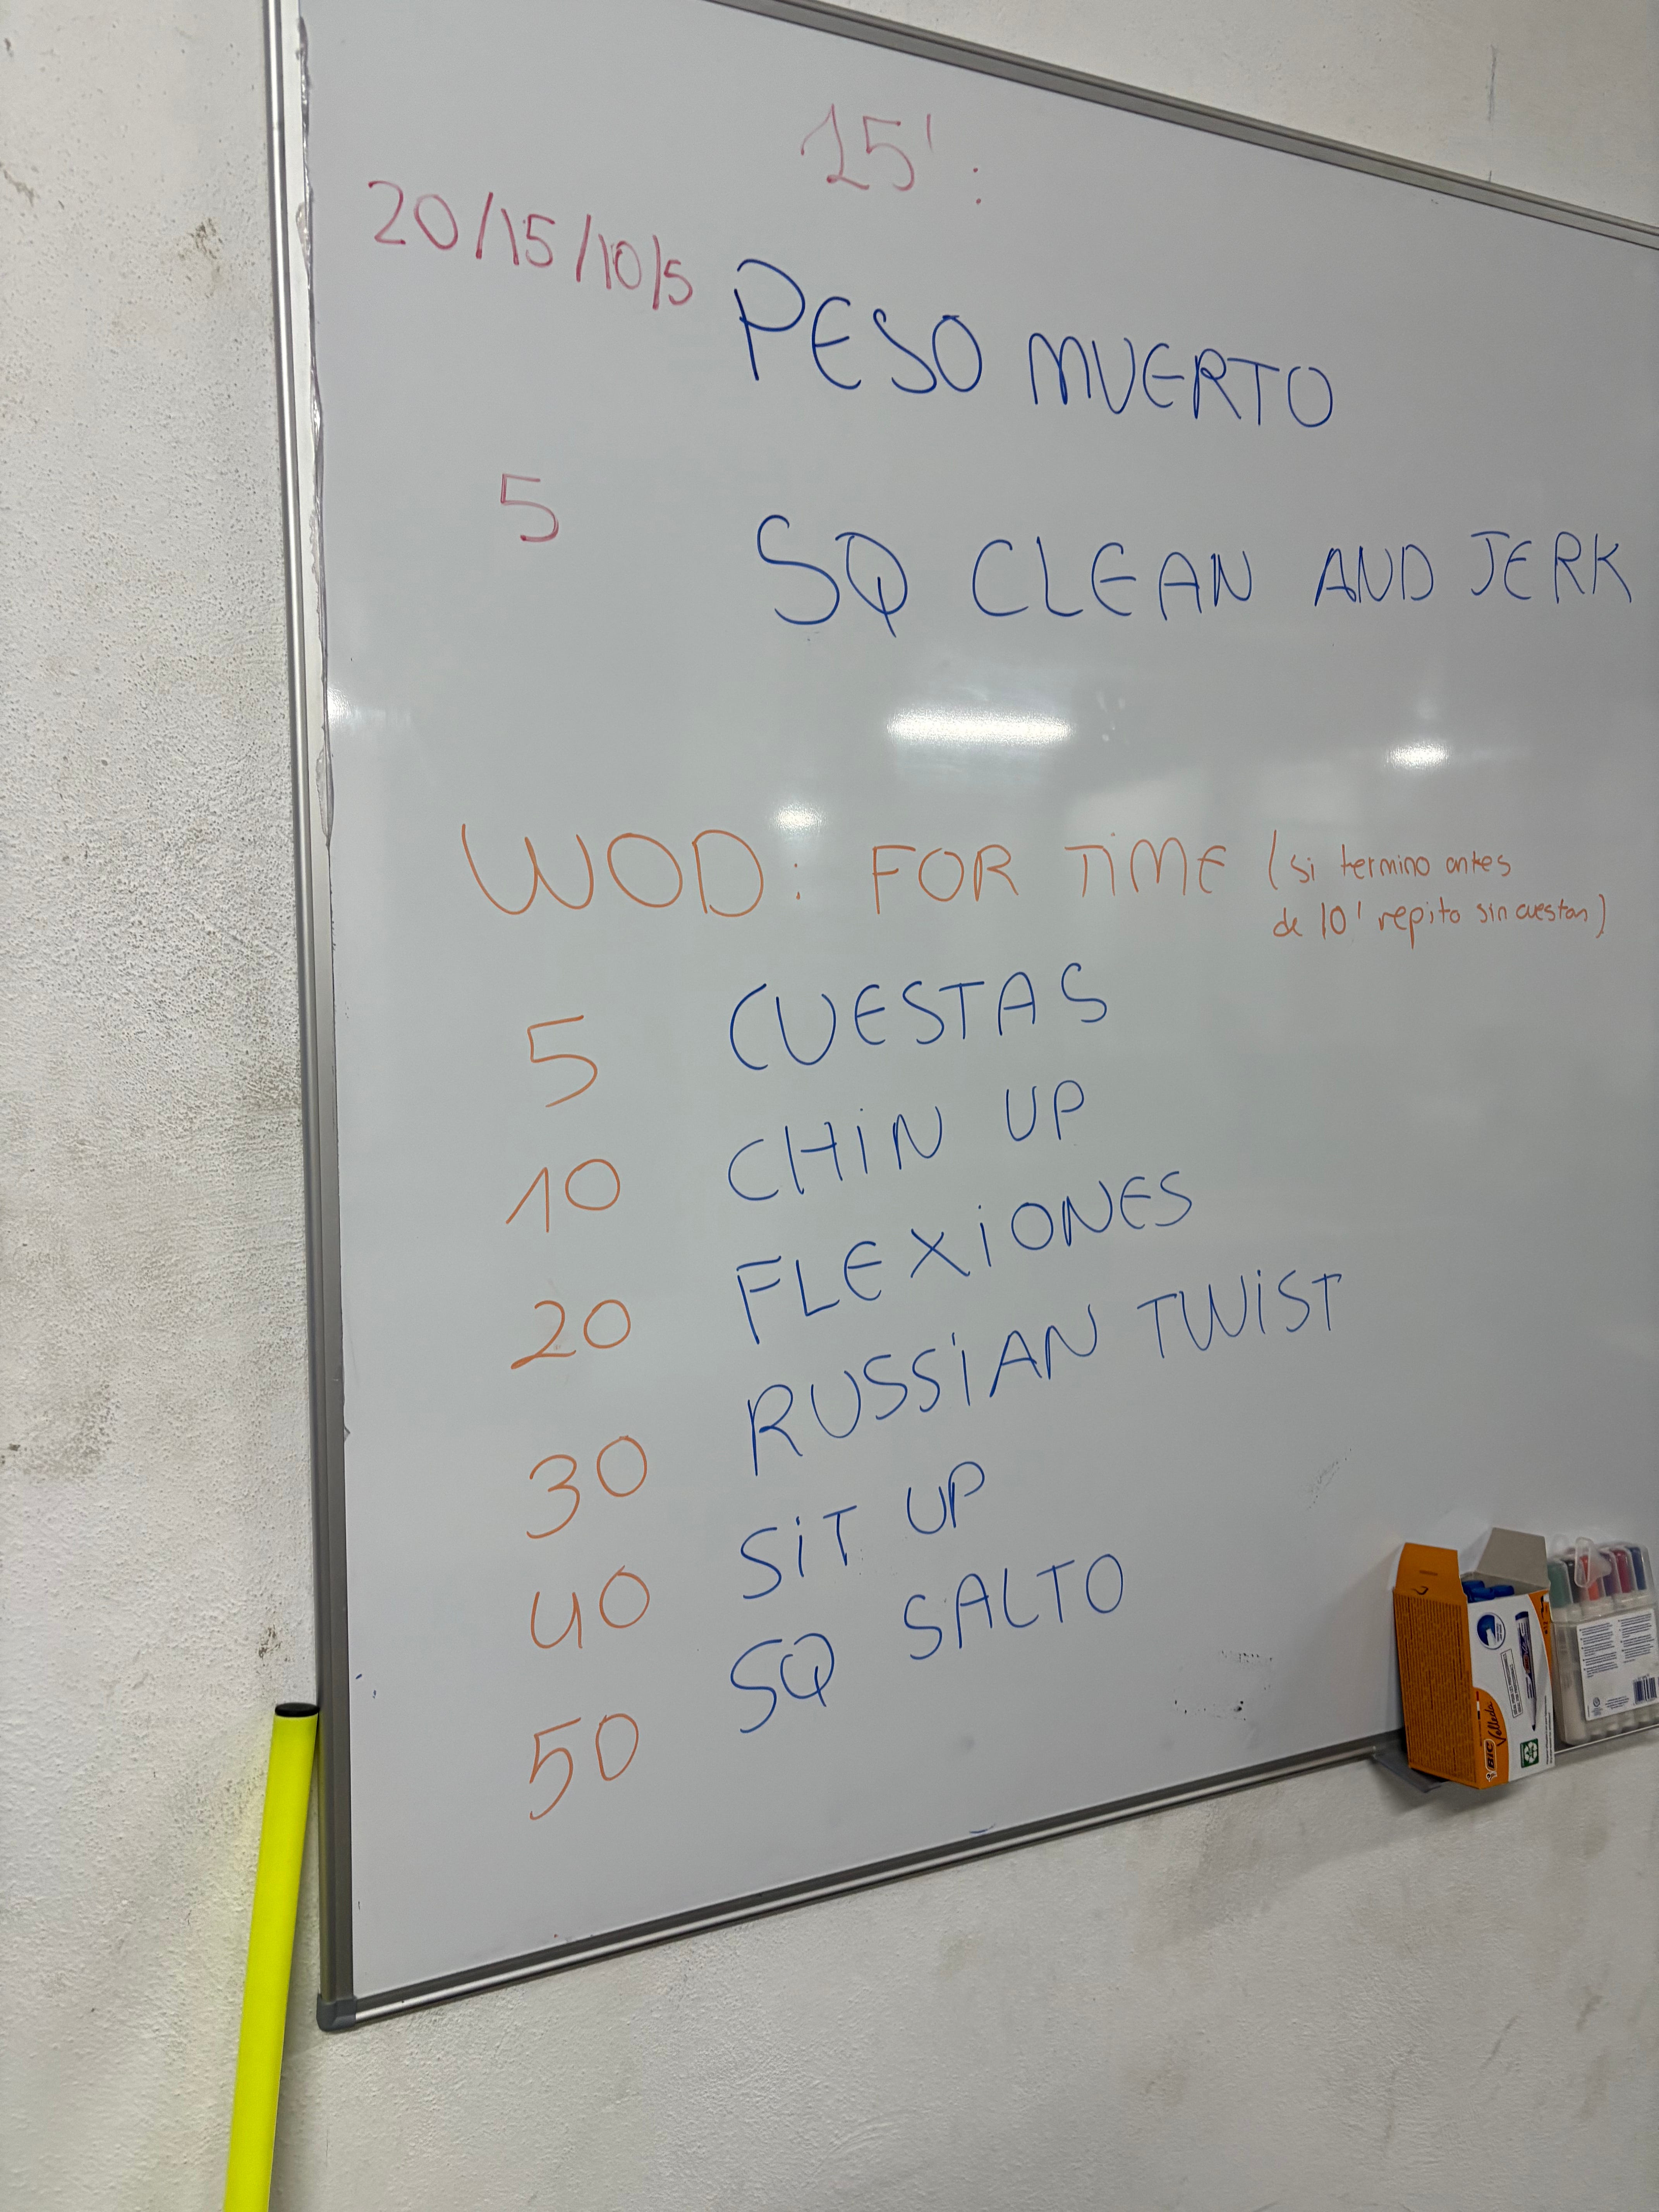 15':
20/15/10/5 PESO MUERTO
5 SQ CLEAN AND JERK
WOD: FOR TiME (si termino antes
de 10' repito sin cuestas)
5 CUESTAS
10 CHiN UP
20 FLEXiONES
30 RUSSiAN TWiST
40 SiT UP
50 SQ SALTO
BIC Velleda